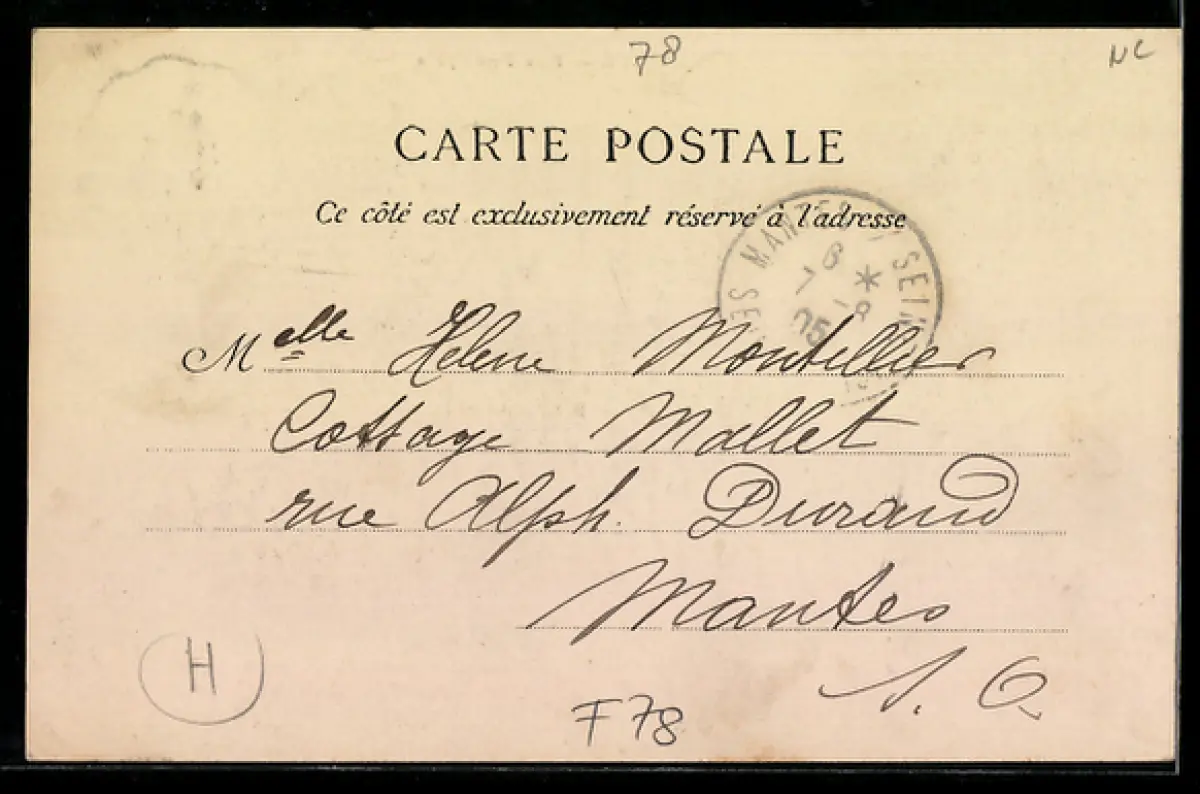 78
NC
CARTE POSTALE
Ce côté est exclusivement réservé à l'adresse
MANTES S/ SEINE
6
7 - 8
05
Melle Helene Montellier
Cottage Mallet
rue Alph. Durand
Mantes
S. O.
H
F78